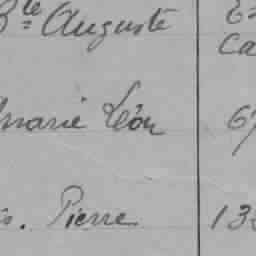 Bte Auguste
Ca
Marie Léon 67
Pierre 13